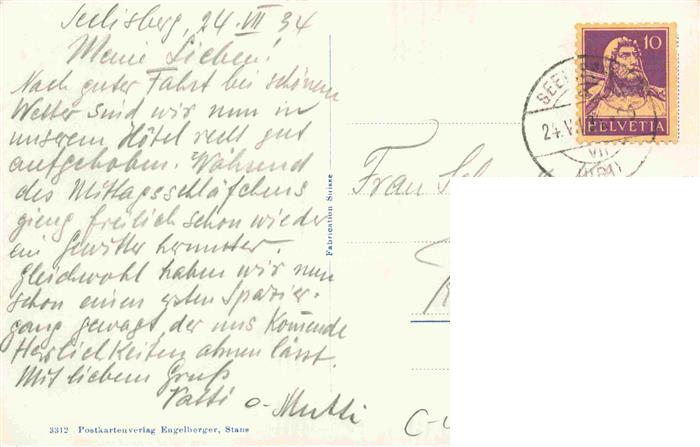 Seelisberg, 24 VII 34
Meine Lieben!
Nach guter Fahrt bei schönem
Wetter sind wir nun in
unserem Hôtel recht gut
aufgehoben. Während
des Mittagsschläfchens
gieng freilich schon wieder
ein Gewitter herunter.
Gleichwohl haben wir nun
schon einen ersten Spazier-
gang gewagt, der uns kommende
Herrlichkeiten ahnen lässt.
Mit liebem Gruß
Vatti o. Mutti
3312 Postkartenverlag Engelberger, Stans
Fabrication Suisse
Frau
10
HELVETIA
24.V
VII
(URI)